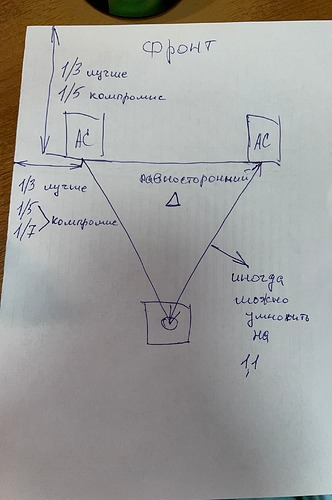 фронт
1/3 лучше
1/5 компромис
АС
АС
1/3 лучше
1/5
1/7
компромис
равносторонний
Δ
иногда
можно
умножить
на
1,1